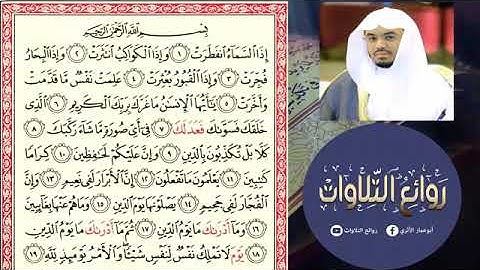 بِسْمِ اللَّهِ الرَّحْمَٰنِ الرَّحِيمِ
إِذَا السَّمَاءُ انفَطَرَتْ ١ وَإِذَا الْكَوَاكِبُ انتَثَرَتْ ٢ وَإِذَا الْبِحَارُ
فُجِّرَتْ ٣ وَإِذَا الْقُبُورُ بُعْثِرَتْ ٤ عَلِمَتْ نَفْسٌ مَّا قَدَّمَتْ
وَأَخَّرَتْ ٥ يَٰأَيُّهَا الْإِنسَٰنُ مَا غَرَّكَ بِرَبِّكَ الْكَرِيمِ ٦ الَّذِي
خَلَقَكَ فَسَوَّىٰكَ فَعَدَّلَكَ ٧ فِي أَيِّ صُورَةٍ مَّا شَاءَ رَكَّبَكَ ٨
كَلَّا بَلْ تُكَذِّبُونَ بِالدِّينِ ٩ وَإِنَّ عَلَيْكُمْ لَحَٰفِظِينَ ١٠ كِرَامًا
كَٰتِبِينَ ١١ يَعْلَمُونَ مَا تَفْعَلُونَ ١٢ إِنَّ الْأَبْرَارَ لَفِي نَعِيمٍ ١٣ وَإِنَّ
الْفُجَّارَ لَفِي جَحِيمٍ ١٤ يَصْلَوْنَهَا يَوْمَ الدِّينِ ١٥ وَمَا هُمْ عَنْهَا بِغَائِبِينَ
١٦ وَمَا أَدْرَىٰكَ مَا يَوْمُ الدِّينِ ١٧ ثُمَّ مَا أَدْرَىٰكَ مَا يَوْمُ الدِّينِ
١٨ يَوْمُ لَا تَمْلِكُ نَفْسٌ لِّنَفْسٍ شَيْئًا وَالْأَمْرُ يَوْمَئِذٍ لِّلَّهِ ١٩
روائع التلاوات
أبو عمار الأثري
روائع التلاوات